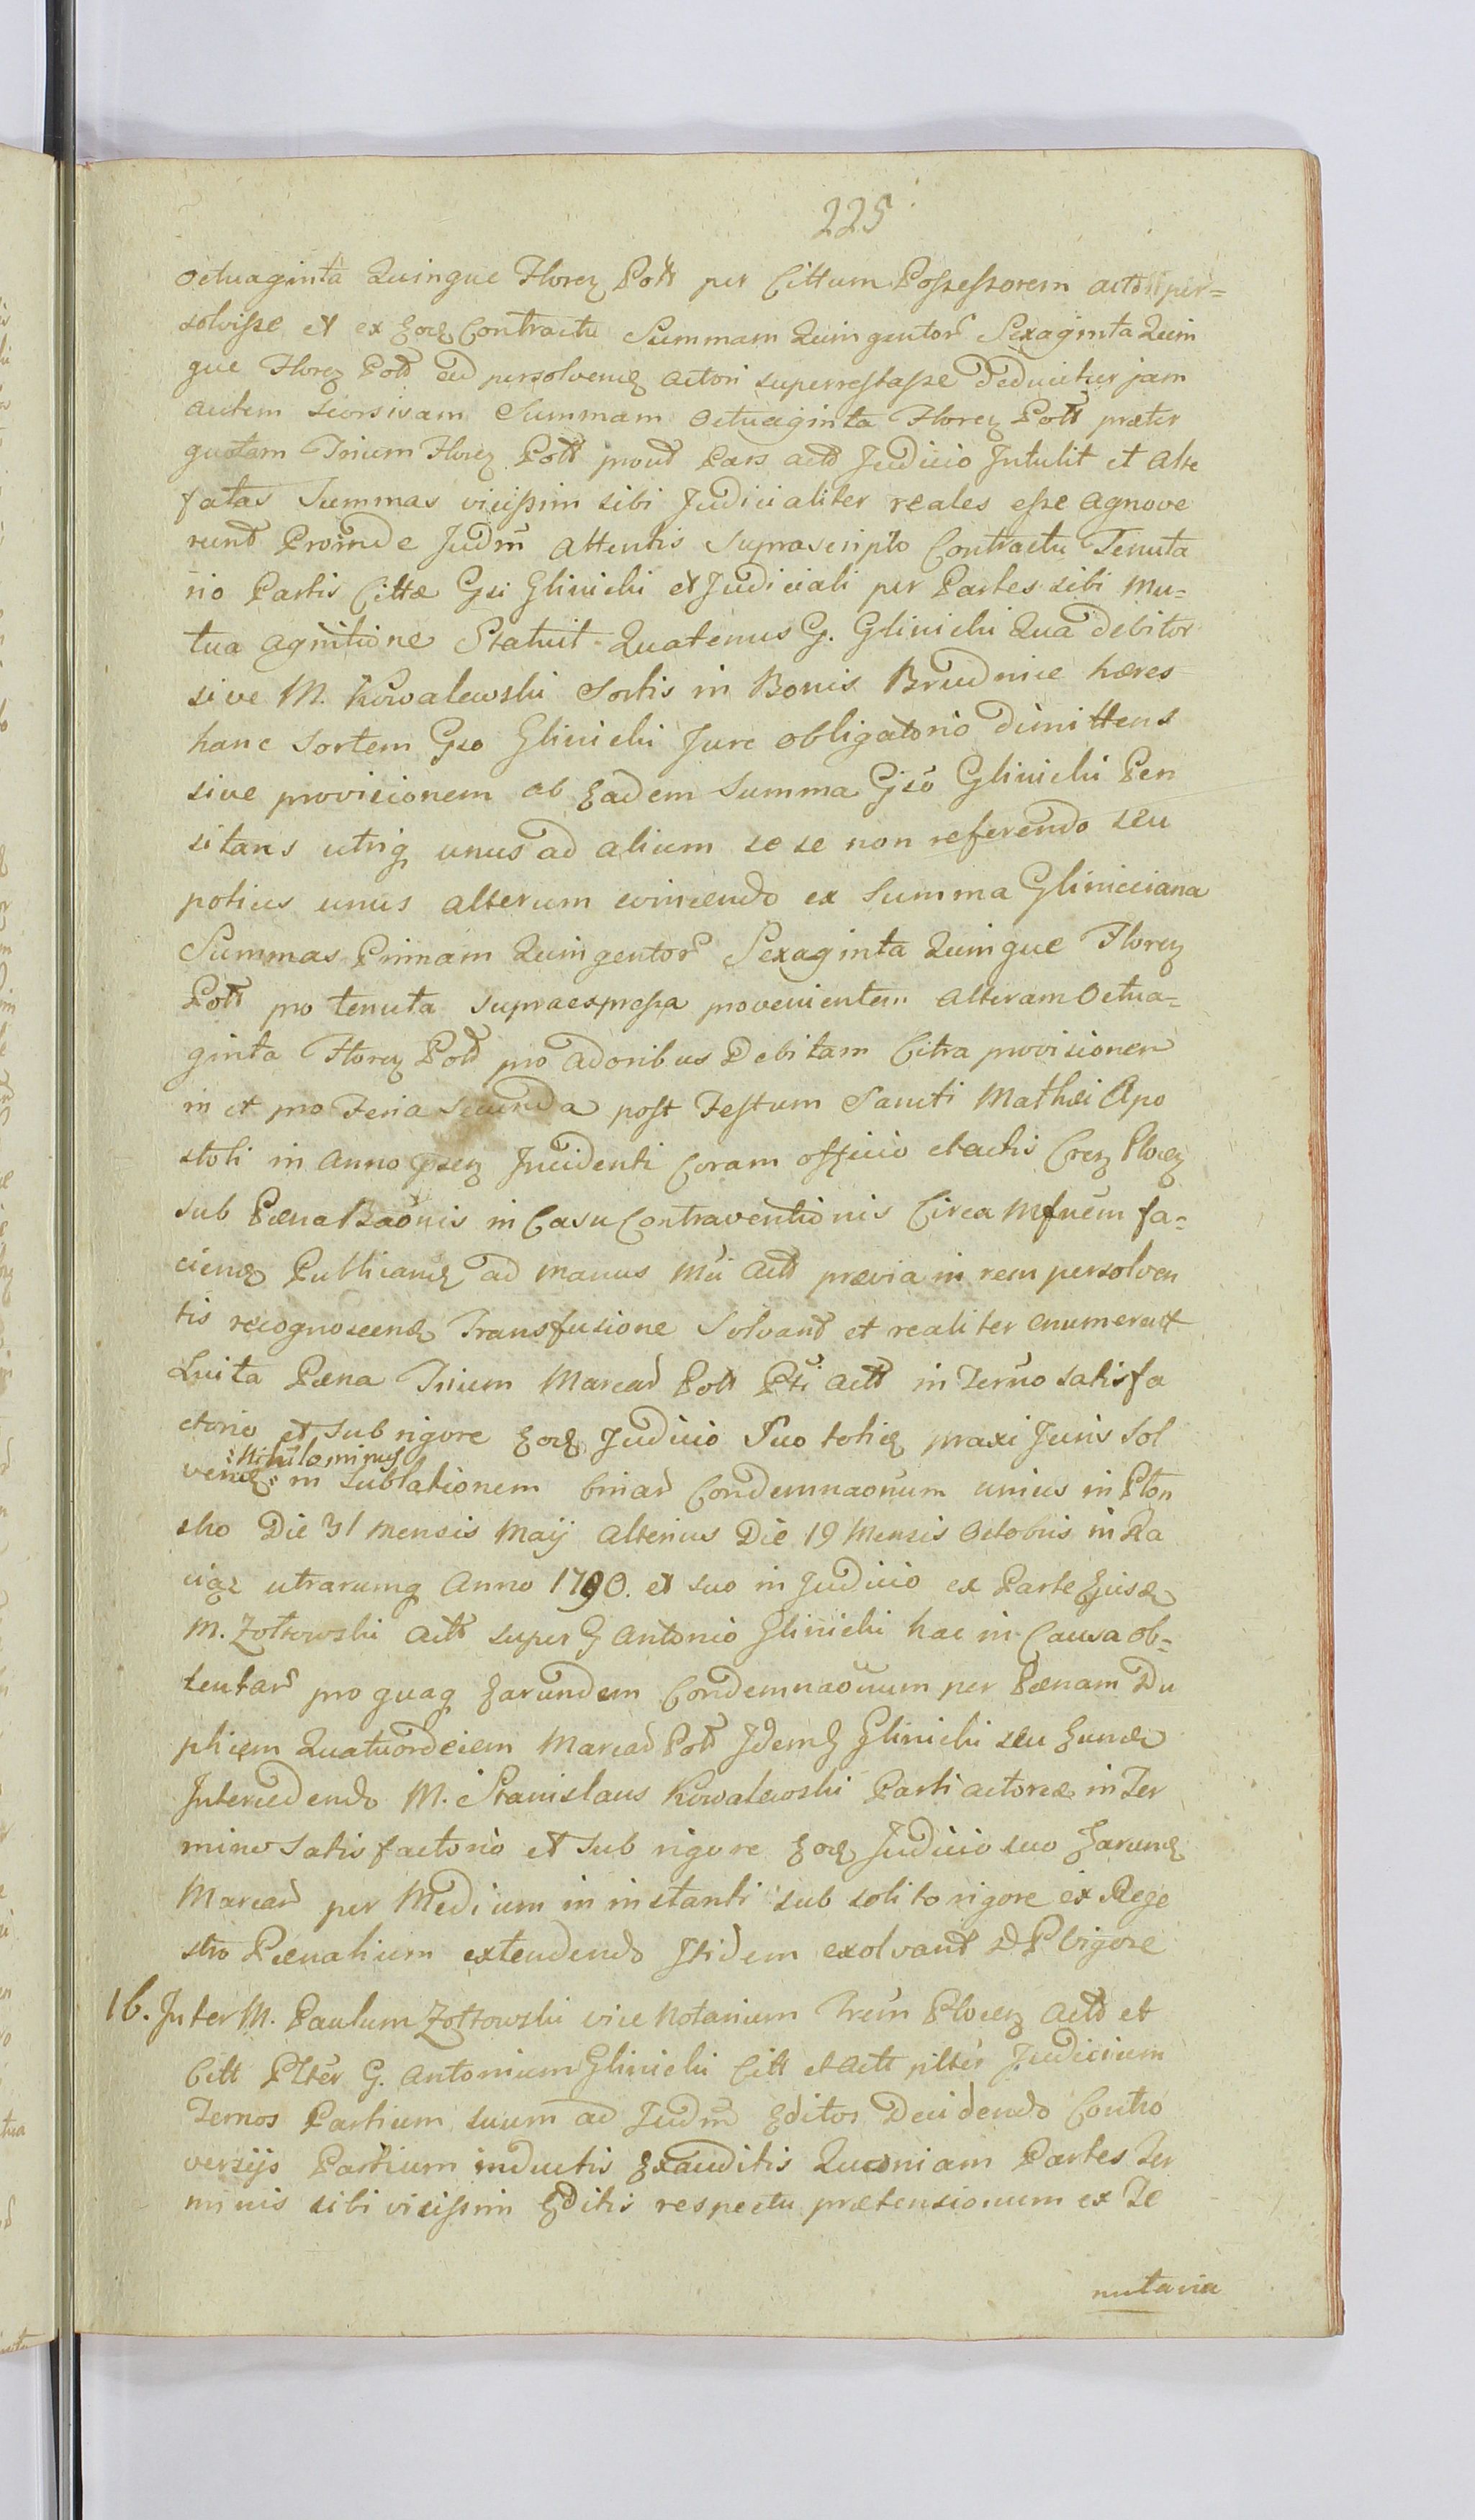 225
octuaginta Quinque Floren Poll per Cittum Possessorem act per=
solvisse et ex Eod Contractu Summam Quingentor Sexaginta Quin
que Floren Poll eid persolvend actori superrestasse deducitur jam
autem seorsivam Summam octuaginta Floren Poll præter
quotam Trium Floren Poll prout Pars act Judicio Intulit et alte
fatas Summas vicissim sibi Judicialiter reales esse agnove
runt Proinde Judm attentis suprascripto Contractu Tenuta
rio Partis Cittæ Gsi Glinicki et Judiciali per Partes sibi mu=
tua agnitione Statuit Quatenus G. Glinicki Qua debitor
sive M. Kowalewski Sortis in Bonis Brudnice hæres
hanc Sortem Gso Glinicki Jure obligatorio dimittens
sive provicionem ab Eadem Summa Gso Glinicki Pen
sitans utriq unus ad alium se se non referendo seu
potius unus alterum evincendo ex Summa Glinicciana
Summas Primam Quingentor Sexaginta Quinque Floren
Poll pro tenuta supraexpressa provenientem alteram Octua=
ginta Floren Poll pro adoribus Debitam Citra provisionem
in et pro Feria secunda post Festum Sancti Mathæi Apo
stoli in Anno psen Incidenti Coram officio et actis Cren Plocen
sub Pæna Baonis in Casu Contraventionis Circa Mfnem fa=
ciend Publicand ad manus Mci Act prævia in rem persolven
tis recognoscend Transfusione Solvant et realiter enumerent
Luita Pæna Trium Marcar Poll Pti Act in Termo satisfa
ctorio et sub rigore Eod Judicio Suo toties praxi Juris Sol
:Nihilominus
vend: in sublationem binar Condemnaonum unius in Plon
sko Die 31 Mensis Maij alterius Die 19 Mensis Octobris in Ra
ciąz utrarumq Anno 1790. et suo in Judicio ex Parte Ejusd
M. Zottowski Act super G Antonio Glinicki hac in Causa ob=
tentar pro quaq Earundem Condemnaonum per Pænam Du
plicem Quatuordecem Marcar Poll Idem G Glinicki seu Eund
Intercedendo M. Stanislaus Kowalewski Parti actoreæ in Ter
mino Satisfactorio et sub rigore Eod Judicio suo Earund
Marcar per Medium in instanti sub solito rigore ex Rege
stro Pænalium extendendo Itidem exolvant D P Vigore
16. Inter M. Paulum Zottowski vice Notarium Trem Plocen Act et
Citt Plter G. Antonium Glinicki Citt et Act plter Judicium
Temos Partium suum ad Judm Editos Decidendo Contro
versijs Partium inductis Exauditis Quoniam Partes Ter
minis sibi vicissim Editis respectu prætensionum ex Te
nutaria